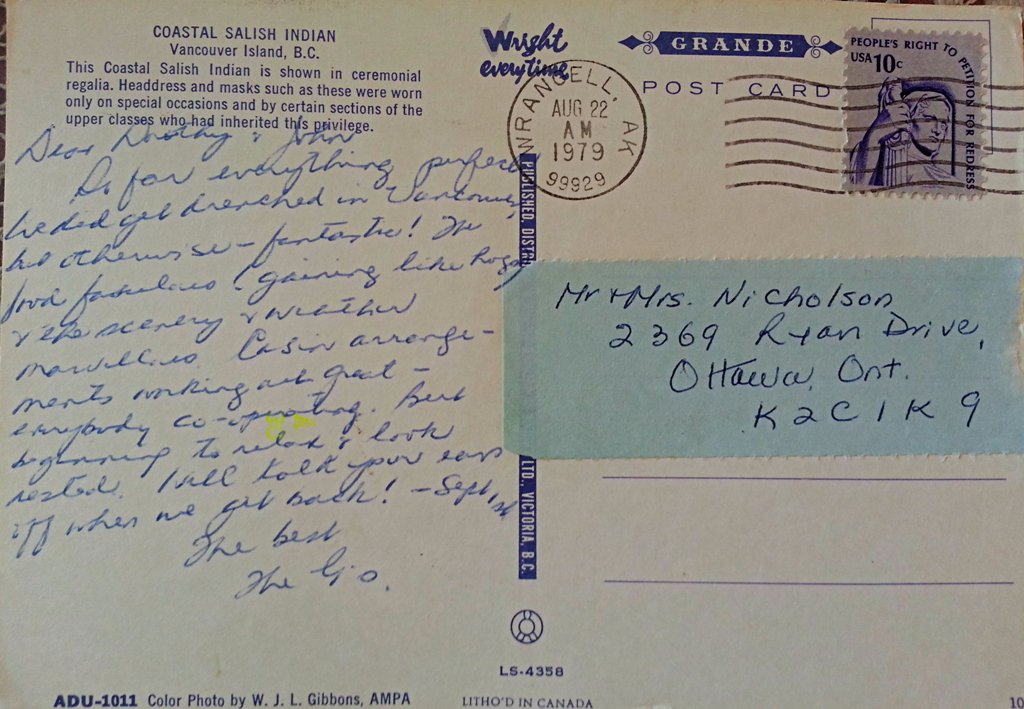 COASTAL SALISH INDIAN
Vancouver Island, B.C.
This Coastal Salish Indian is shown in ceremonial
regalia. Headdress and masks such as these were worn
only on special occasions and by certain sections of the
upper classes who had inherited this privilege.
Dear Dorothy & John
So far everything perfect
We did get drenched in Vancouver,
but otherwise – fantastic! The
food fabulous (gaining like hogs)
& the scenery & weather
marvellous. Casin arrange-
ments working out great –
everybody co-operating. Bert
beginning to relax & look
rested. Will talk your ears
off when we get back! – Sept 1st
The best
The G's.
ADU-1011 Color Photo by W. J. L. Gibbons, AMPA
Wright
everytime
GRANDE
POST CARD
WRANGELL, AK
AUG 22
AM
1979
99929
PEOPLE'S RIGHT TO PETITION FOR REDRESS
USA 10c
PUBLISHED, DISTR
LTD., VICTORIA, B.C.
Mr & Mrs. Nicholson
2369 Ryan Drive,
Ottawa, Ont.
K2C1K9
LS-4358
LITHO'D IN CANADA
10